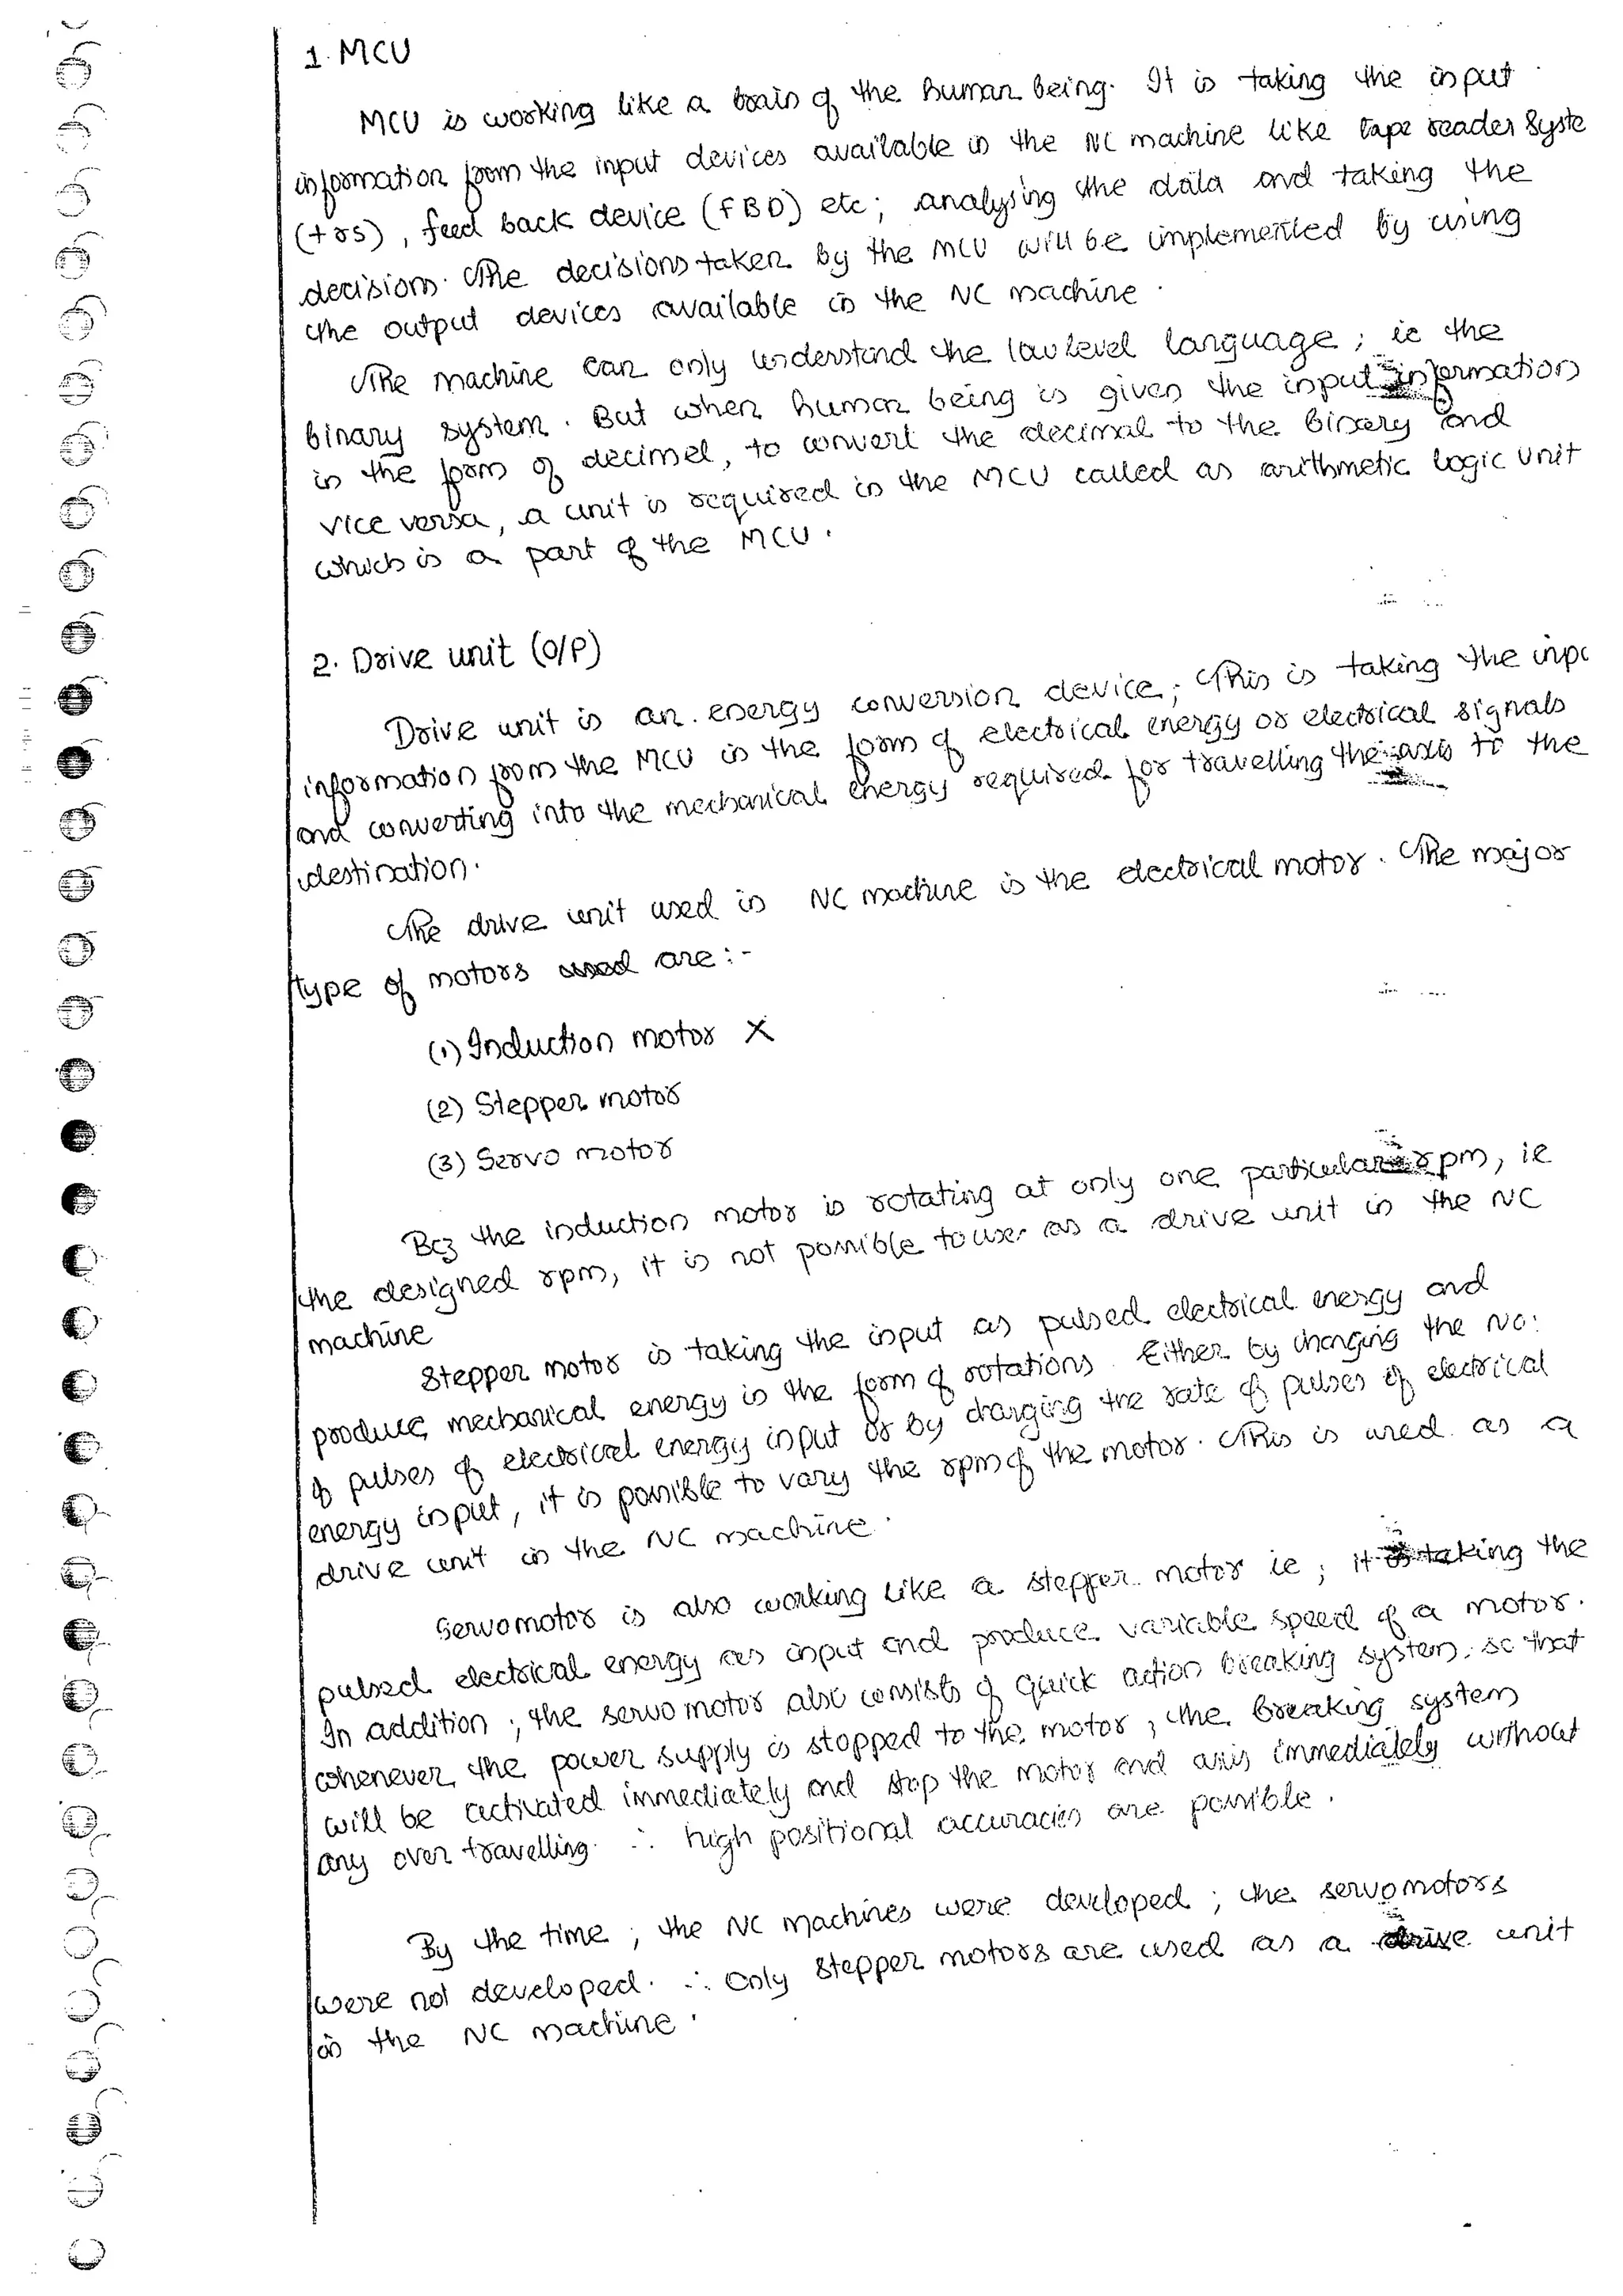 1. MCU
MCU is working like a brain of the human being. It is taking the input
information from the input devices available in the NC machine like tape reader Syste
(trs), feed back device (FBD) etc; analysing the data and taking the
decisions. The decisions taken by the MCU will be implemented by using
the output devices available in the NC machine.
The machine can only understand the low level language; ie the
binary system. But when human being is given the input information
in the form of decimel, to convert the decimal to the binary and
vice versa, a unit is required in the MCU called as arithmetic logic unit
which is a part of the MCU.
2. Drive unit (O/P)
Drive unit is an energy conversion device; This is taking the inpu
information from the MCU in the form of electrical energy or electrical signals
and converting into the mechanical energy required for travelling the axis to the
destination.
The drive unit used in NC machine is the electrical motor. The major
type of motors used are:-
(1) Induction motor X
(2) Stepper motor
(3) Servo motor
Bcz the induction motor is rotating at only one particular rpm, ie
the designed rpm, it is not possible to use as a drive unit in the NC
machine
Stepper motor is taking the input as pulsed electrical energy and
produce mechanical energy in the form of rotations. Either by changing the No:
of pulses of electrical energy input or by changing the rate of pulses of electrical
energy input, it is possible to vary the rpm of the motor. This is used as a
drive unit in the NC machine.
Servomotor is also working like a stepper motor ie; it is taking the
pulsed electrical energy as input and produce variable speed of a motor.
In addition; the servo motor also consists of quick action breaking system. so that
whenever the power supply is stopped to the motor, the breaking system
will be activated immediately and stop the motor and axis immediately without
any over travelling. ∴ high positional accuracies are possible.
By the time; the NC machines were developed; the servomotors
were not developed. ∴ only stepper motors are used as a drive unit
in the NC machine.